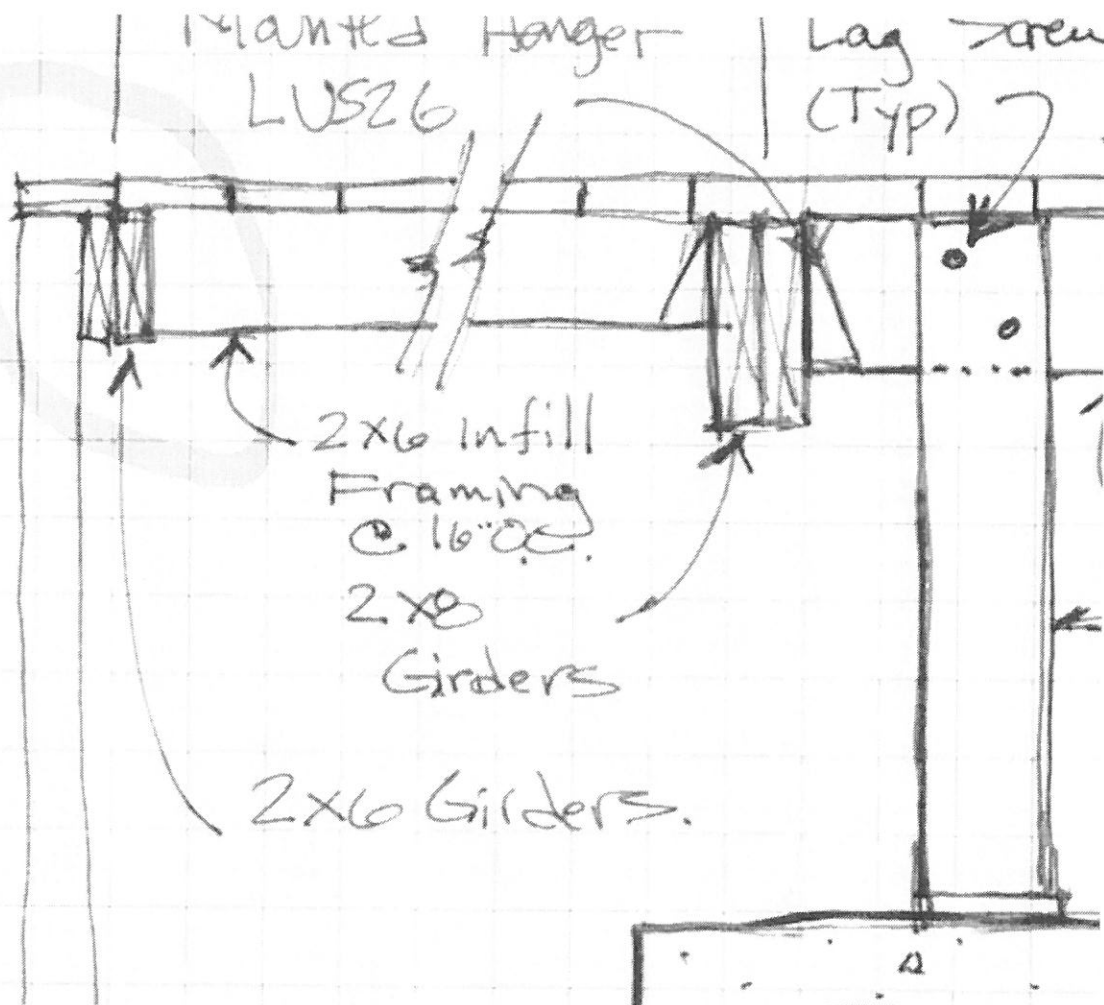 Hanger
LUS26
Lag Screw
(Typ)
2x6 Infill
Framing
@ 16" O.C.
2x8
Girders
2x6 Girders.